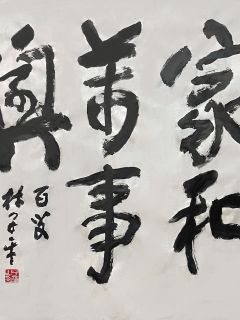 家和
萬事
興
百歲
林子平